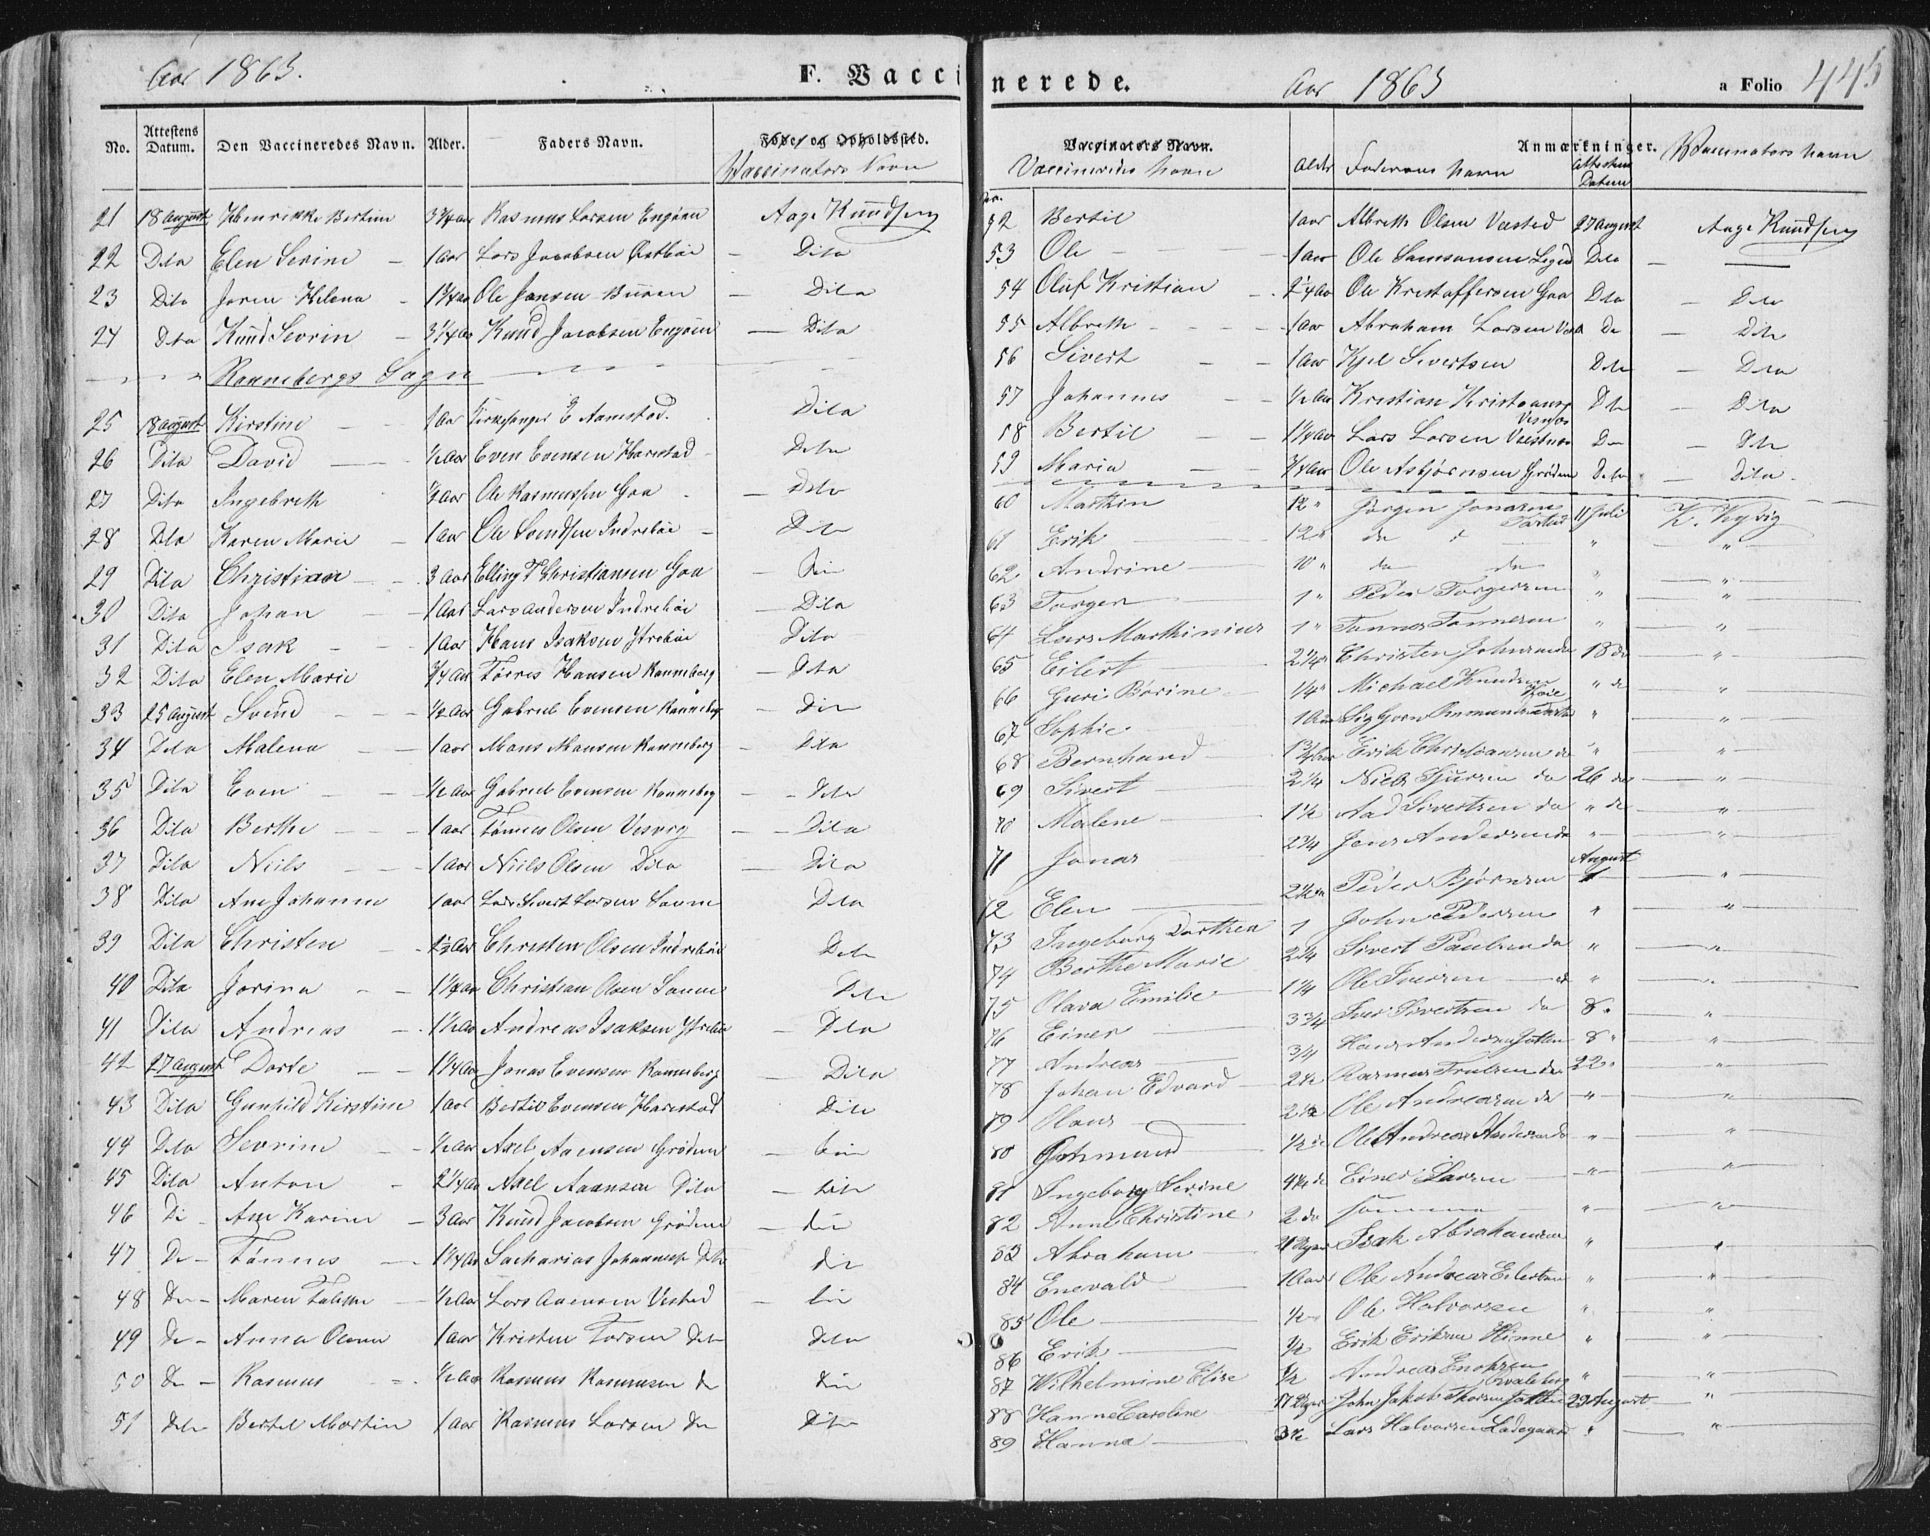 Aar 1863.
F. Vaccinerede.
Aar 1863
a Folio 445
No. Attestens Datum. Den Vaccineredes Navn. Alder. Faders Navn. Føde- og Opholdssted. Vaccinators Navn
21 18 August Henrikke Bertine 3 3/4 aar Rasmus Larsen Engøen Aage Knudsen
22 Dito Elen Serine 1 Aar Lars Jacobsen Østbøe Dito
23 Dito Joren Helena 1 3/4 aar Ole Jansen Buøen Dito
24 Dito Knud Sevrin 3 1/4 Aar Knud Jacobsen Engøen Dito
Rannebergs Sogn
25 18 august Kirstine 1 Aar Kirkesanger E Aamstad. Dito
26 Dito David 1/2 Aar Even Evensen Harestad Dito
27 Dito Ingebreth 1/2 Aar Ole Rasmussen Goa Dito
28 Dito Karen Marie 1 Aar Ole Svendsen Indrebøe Dito
29 Dito Christian 3 Aar Elling T Christiansen Goa Dito
30 Dito Johan 1 Aar Lars Andersen Indrebøe Dito
31 Dito Isak 1 Aar Hans Isaksen Ytrebøe Dito
32 Dito Elen Marie 3/4 Aar Tørres Hansen Ranneberg Dito
33 25 august Svend 1/2 Aar Gabriel Evensen Ranneberg Dito
34 Dito Malena 1 aar Mans Mansen Ranneberg Dito
35 Dito Even 1/2 Aar Gabriel Evensen Ranneberg Dito
36 Dito Berthe 1 aar Tønnes Olsen Visvig Dito
37 Dito Niels 1 aar Niels Olsen Dito Dito
38 Dito Ane Johanne 1 aar Lars Sivert Larsen Sande Dito
39 Dito Christen 1 1/2 Aar Christen Olsen Indrebøe Dito
40 Dito Jorina 1 1/4 aar Christian Olsen Sande Dito
41 Dito Andreas 1 1/2 Aar Andreas Isaksen Ytrebøe Dito
42 27 august Dorte 1 1/4 Aar Jonas Evensen Ranneberg Dito
43 Dito Gunhild Kirstine 1 aar Bertil Evensen Harestad Dito
44 Dito Sevrine 1/2 aar Axel Aaensen Grødem
45 Dito Anton 2 1/4 aar Axel Aaensen Dito Dito
46 Di Ane Karine 3 aar Knud Jacobsen Grødem
47 De Tønnes 1 1/4 Aar Sacharias Johannesen Dito
48 De Maren 1/2 Aar Lars Aaensen Visted
49 De Anna Olene 1 aar Kristen Larsen Dito Dito
50 De Rasmus 1/2 Aar Rasmus Rasmussen De
51 Dito Bertel Martin 1 aar Rasmus Larsen De Dito
Vaccinators Navn. Vaccineredes Navn Alder Faderens Navn Anmærkninger. Attestens Datum Vaccinators Navn
No.
52 Bertil 1 aar Albreth Olsen Visted 27 august Aage Knudsen
53 Ole 1 aar Ole Samsonsen Dito
54 Oluf Kristian 2 1/4 Aar Ole Kristoffersen Goa Dto Dito
55 Albreth 1 Aar Abraham Larsen De Dito
56 Sivert 1 Aar Kjel Sivertsen Dito Dito
57 Johannes 1/2 Aar Kristian Kristiansen Dito Dito
58 Bertil 1 1/4 Aar Lars Larsen De Dito
59 Maria 3/4 Aar Ole Asbjørnsen Grødem Dito Dito
60 Marthin 12 " Jørgen Jonasen 11 Juli K. Vigsvig
61 Erik 12 " do "
62 Andrine 10 " do do "
63 Torger 1 " Peder Torgersen "
64 Lars Marthinius 1 " Tønnes Tønnesen "
65 Eilert 2 1/4 Christen Johnsen do 13 do
66 Guri Børine 1/4 " Michael Knudsen " do
67 Sophie 1 Aar Sig Goen "
68 Bernhard 1 3/4 Aar Erik Christiansen do "
69 Sivert 2 1/4 Niels Sjursen do 26 do
70 Malene 1 1/2 Aad Sivertsen do " do
71 Jonas 2 3/4 Jens Andersen do "
August
72 Elen 2 1/2 Peder Bjørnsen 1
73 Ingeborg Dorthea 1 John Pedersen "
74 Berthe Marie 2 3/4 Sivert Paulsen do "
75 Olava Emilie 1 1/4 Ole Iversen do "
76 Einer 3 3/4 Iver Sivertsen do 8 "
77 Andreas 3/4 Hans Andersen Jotten 8 "
78 Johan Edvard 2 1/2 Rasmus Truelsen do 22 "
79 Hans 2 1/2 Ole Andreasen do "
80 Gudmund 1/2 do Ole Andreas Andersen do "
81 Ingeborg Serine 4 1/2 do Einer Larsen "
82 Anne Christine 2 do samme "
83 Abraham Uger Isak Abrahamsen "
84 Enevald 1 Aar Ole Andreas Eilertsen "
85 Ole 1/2 Ole Halvorsen "
86 Erik 1/2 Erik Eriksen Hinne "
87 Wilhelmine Elise 1/2 Andreas Enoksen "
88 Hanne Caroline 17 Uger John Jakob Thorsen Jotten 29 August
89 Hanna 3 1/2 Lars Halvorsen Ladegaard "